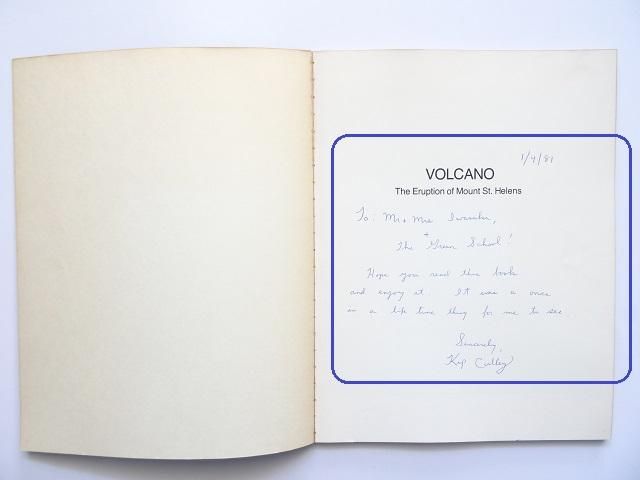 1/4/81
VOLCANO
The Eruption of Mount St. Helens
To: Mr + Mrs
+
The Green School!
Hope you read this book
and enjoy it. It was a once
in a life time thing for me to see.
Sincerely,
Kip Culley